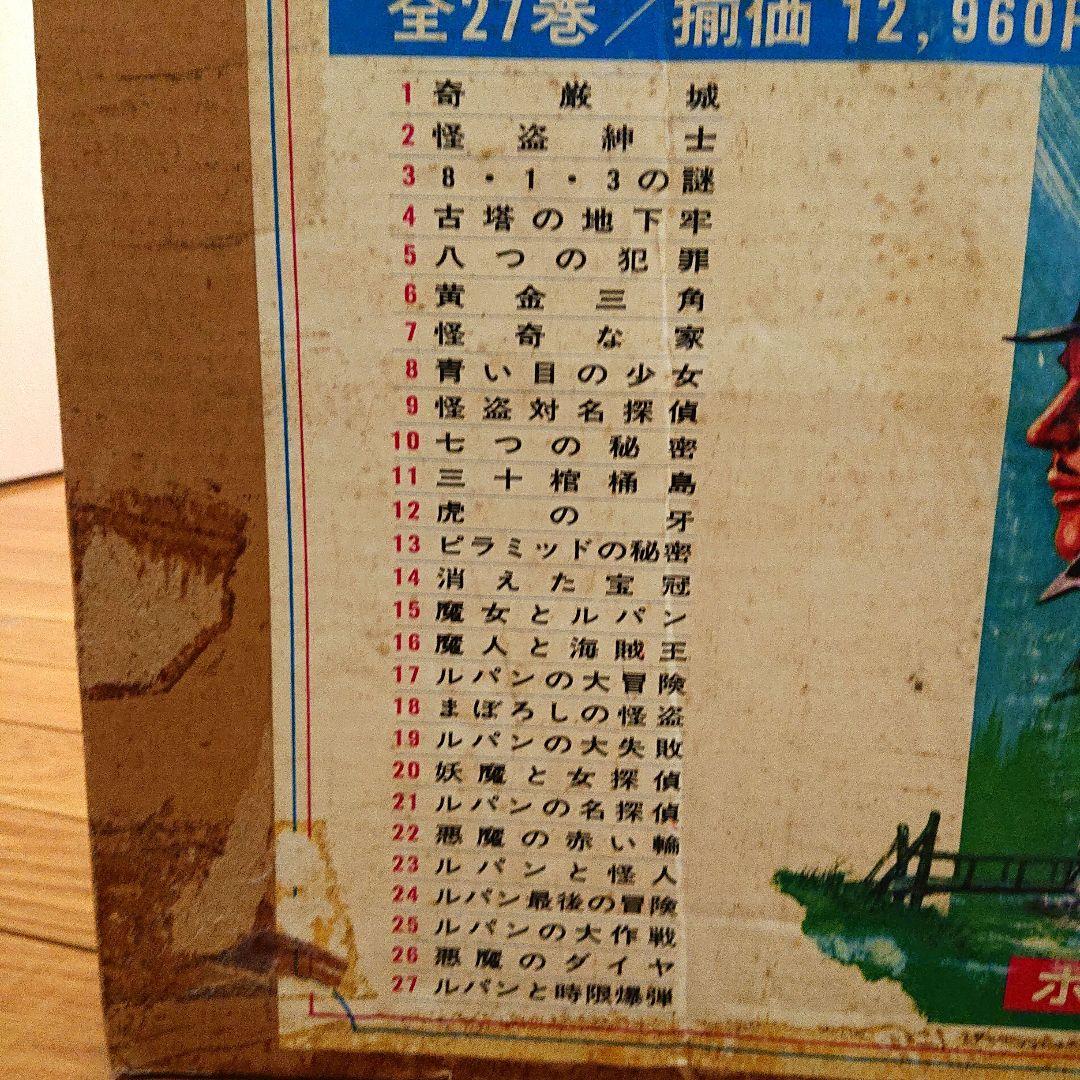 全27巻／揃価 12,960円
1 奇厳城
2 怪盗紳士
3 8・1・3の謎
4 古塔の地下牢
5 八つの犯罪
6 黄金三角
7 怪奇な家
8 青い目の少女
9 怪盗対名探偵
10 七つの秘密
11 三十棺桶島
12 虎の牙
13 ピラミッドの秘密
14 消えた宝冠
15 魔女とルパン
16 魔人と海賊王
17 ルパンの大冒険
18 まぼろしの怪盗
19 ルパンの大失敗
20 妖魔と女探偵
21 ルパンの名探偵
22 悪魔の赤い輪
23 ルパンと怪人
24 ルパン最後の冒険
25 ルパンの大作戦
26 悪魔のダイヤ
27 ルパンと時限爆弾
ポ